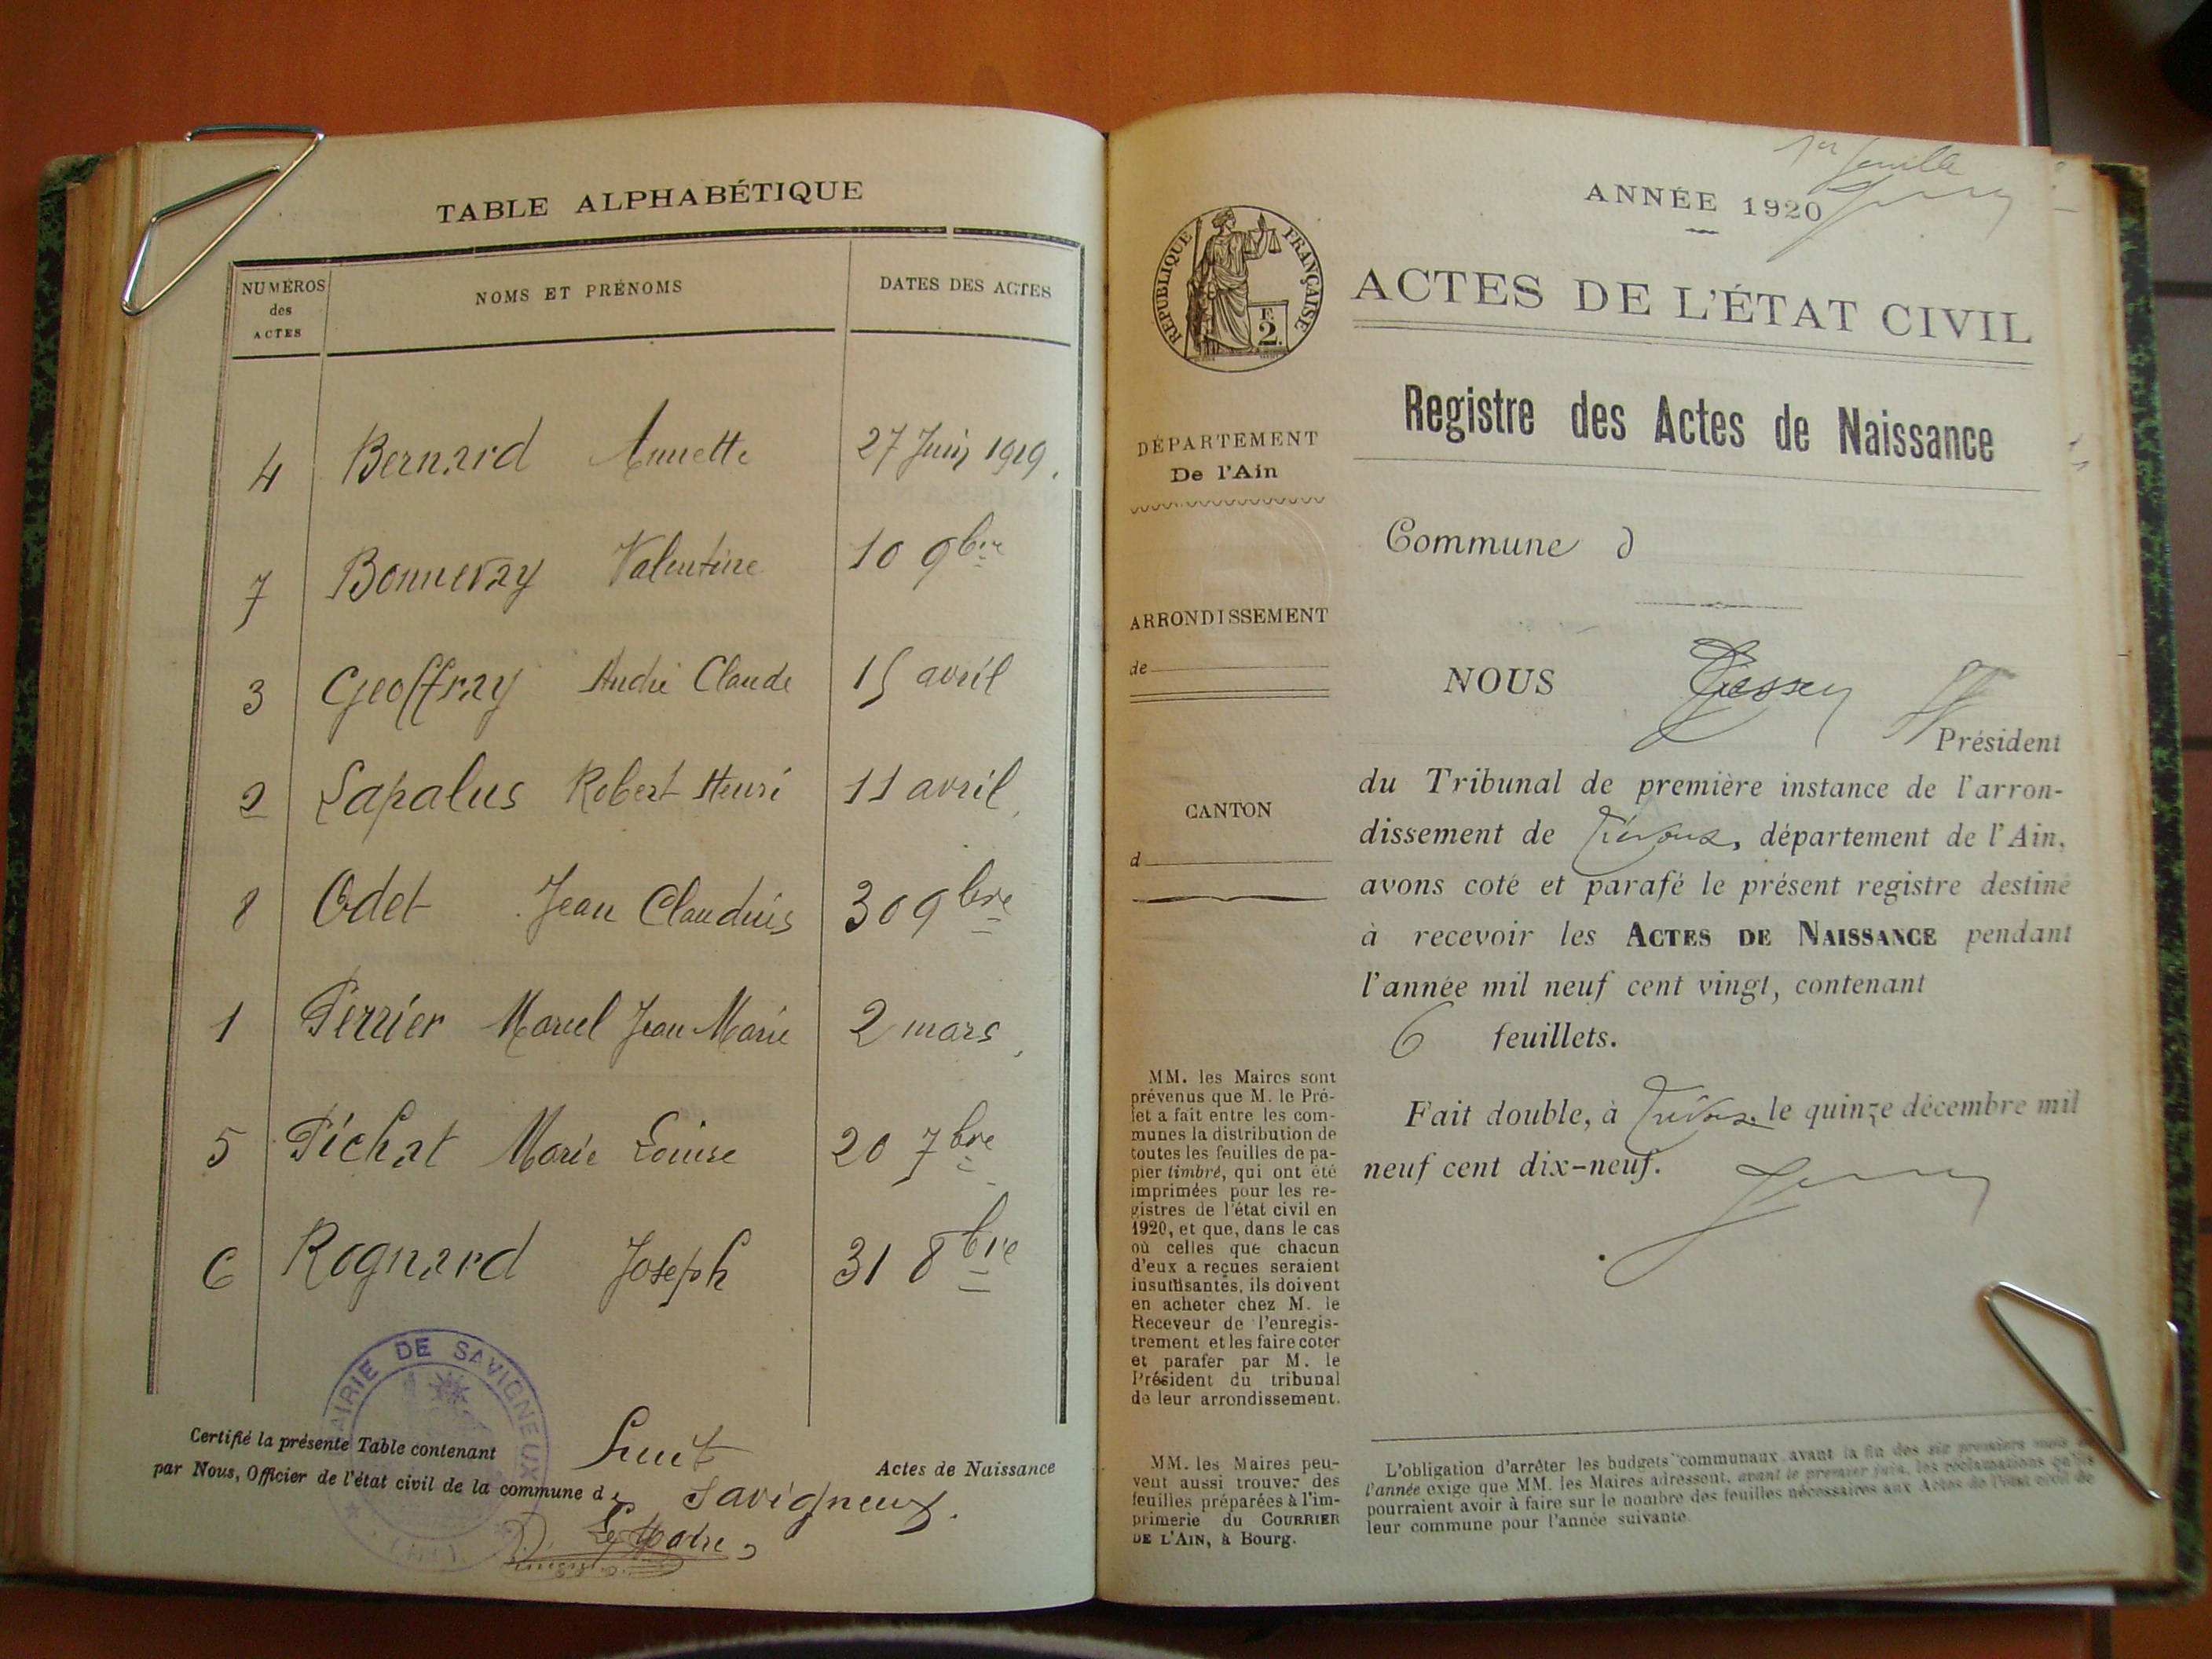 TABLE ALPHABÉTIQUE
NUMÉROS des ACTES
NOMS ET PRÉNOMS
DATES DES ACTES
4 Bernard Annette 27 Juin 1919.
7 Bonnevay Valentine 10 9bre
3 Geoffray André Claude 15 avril
2 Lapalus Robert Henri 11 avril
8 Odet Jean Claudius 30 9bre
1 Perrier Marcel Jean Marie 2 mars
5 Pichat Marie Louise 20 7bre
6 Rognard Joseph 31 8bre
MAIRIE DE SAVIGNEUX
(AIN)
Certifié la présente Table contenant huit Actes de Naissance
par Nous, Officier de l'état civil de la commune de Savigneux.
Le Maire
1er feuille
ANNÉE 1920
RÉPUBLIQUE FRANÇAISE
2F.
ACTES DE L'ÉTAT CIVIL
Registre des Actes de Naissance
DÉPARTEMENT
De l'Ain
Commune d
ARRONDISSEMENT
de
CANTON
d
NOUS
Président
du Tribunal de première instance de l'arron-
dissement de Trévoux, département de l'Ain,
avons coté et parafé le présent registre destiné
à recevoir les ACTES DE NAISSANCE pendant
l'année mil neuf cent vingt, contenant
6 feuillets.
Fait double, à Trévoux le quinze décembre mil
neuf cent dix-neuf.
MM. les Maires sont
prévenus que M. le Pré-
fet a fait entre les com-
munes la distribution de
toutes les feuilles de pa-
pier timbré, qui ont été
imprimées pour les re-
gistres de l'état civil en
1920, et que, dans le cas
où celles que chacun
d'eux a reçues seraient
insuffisantes, ils doivent
en acheter chez M. le
Receveur de l'enregis-
trement et les faire coter
et parafer par M. le
Président du tribunal
de leur arrondissement.
MM. les Maires peu-
vent aussi trouver des
feuilles préparées à l'im-
primerie du COURRIER
DE L'AIN, à Bourg.
L'obligation d'arrêter les budgets communaux avant la fin des six premiers mois de
l'année exige que MM. les Maires adressent, avant le premier juin, les réclamations qu'ils
pourraient avoir à faire sur le nombre des feuilles nécessaires aux Actes de l'état civil de
leur commune pour l'année suivante.